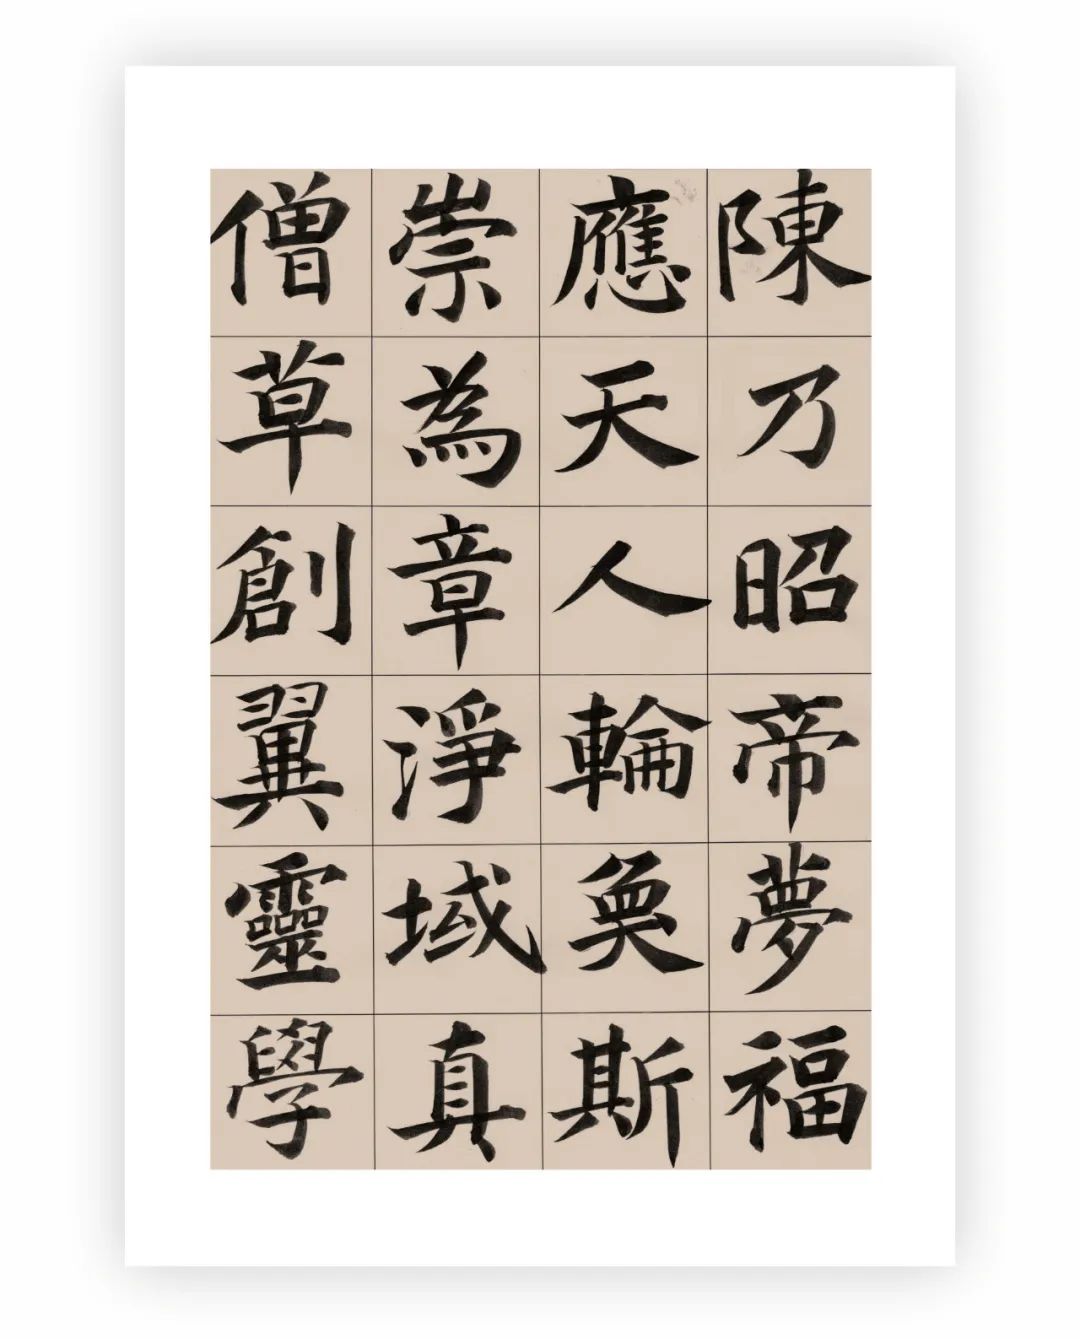 陳乃昭帝夢福
應天人輪奐斯
崇為章淨域真
僧草創翼靈學